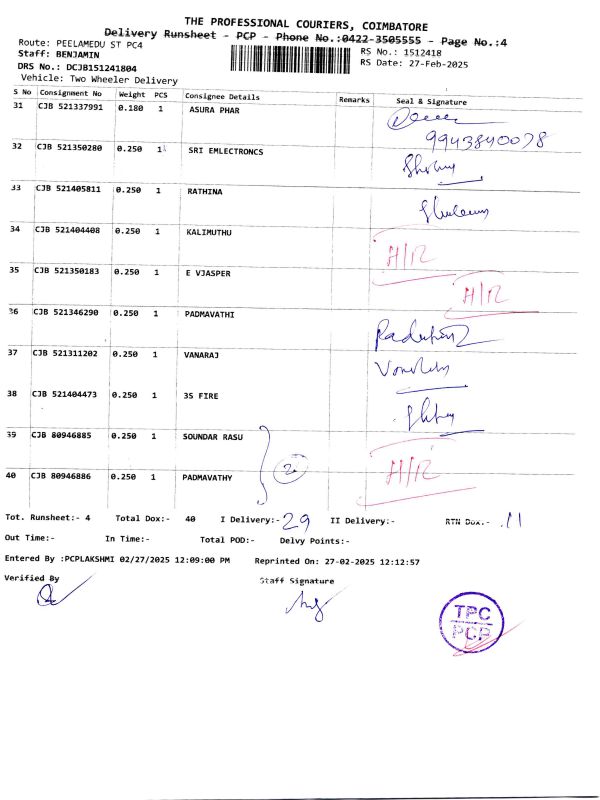 THE PROFESSIONAL COURIERS, COIMBATORE
Delivery Runsheet - PCP - Phone No.:0422-3505555 - Page No.:4
Route: PEELAMEDU ST PC4
RS No.: 1512418
Staff: BENJAMIN
RS Date: 27-Feb-2025
DRS No.: DCJB151241804
Vehicle: Two Wheeler Delivery
S No Consignment No Weight PCS Consignee Details Remarks Seal & Signature
31 CJB 521337991 0.180 1 ASURA PHAR
9943840078
32 CJB 521350280 0.250 1 SRI EMLECTRONCS
33 CJB 521405811 0.250 1 RATHINA
34 CJB 521404408 0.250 1 KALIMUTHU H/R
35 CJB 521350183 0.250 1 E VJASPER H/R
36 CJB 521346290 0.250 1 PADMAVATHI
37 CJB 521311202 0.250 1 VANARAJ
38 CJB 521404473 0.250 1 3S FIRE
39 CJB 80946885 0.250 1 SOUNDAR RASU
2 H/R
40 CJB 80946886 0.250 1 PADMAVATHY
Tot. Runsheet:- 4 Total Dox:- 40 I Delivery:- 29 II Delivery:- RTN Dox:- 11
Out Time:- In Time:- Total POD:- Delvy Points:-
Entered By :PCPLAKSHMI 02/27/2025 12:09:00 PM Reprinted On: 27-02-2025 12:12:57
Verified By Staff Signature
TPC
PCP